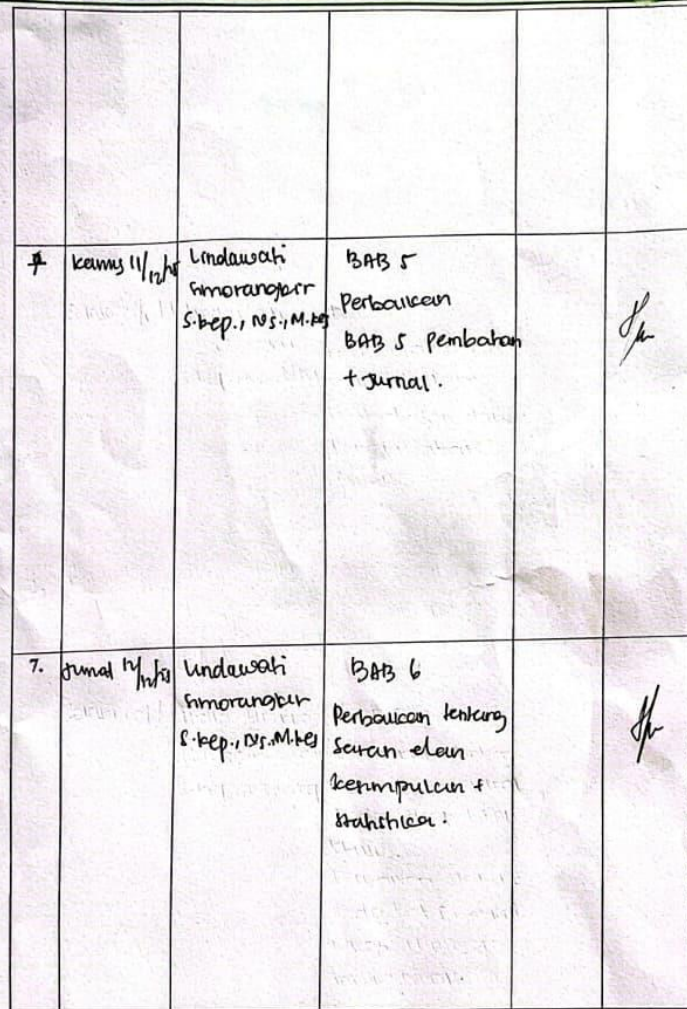 Kamis 11/12/25
Lindawati
Simorangkir
S.kep., Ns., M.kes
BAB 5
Perbaikan
BAB 5 pembahan
+ Jurnal.
7.
Jumat 12/12/25
Lindawati
Simorangkir
S.kep., Ns., M.kes
BAB 6
Perbaikan tentang
saran dan
kesimpulan +
statistika.